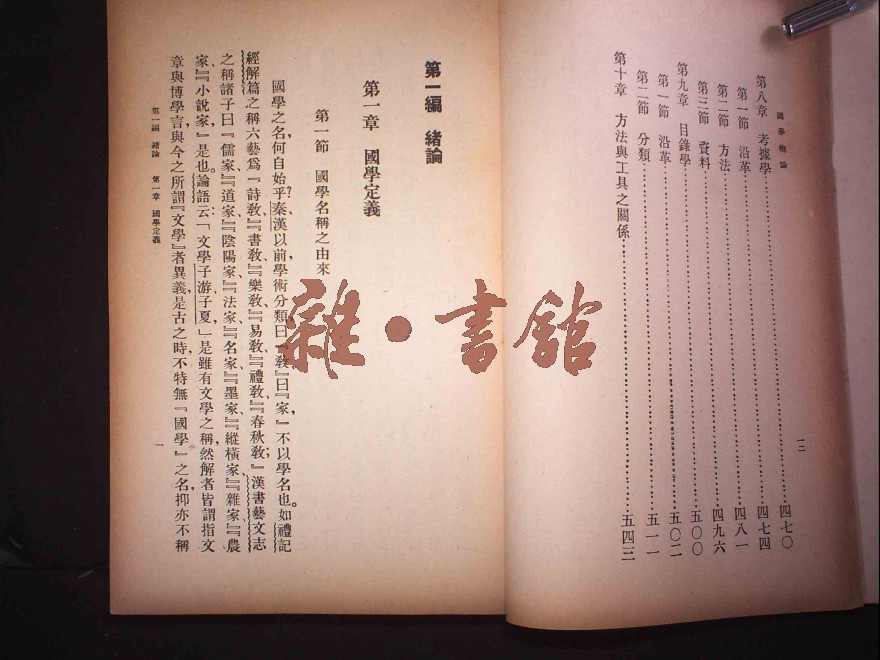 國學概論
第八章　考據學……四七〇
第一節　沿革……四七四
第二節　方法……四八一
第三節　資料……四九六
第九章　目錄學……五〇〇
第一節　沿革……五〇二
第二節　分類……五一一
第十章　方法與工具之關係……五四三
一二
第一編　緒論
第一章　國學定義
第一節　國學名稱之由來
國學之名，何自始乎？秦漢以前，學術分類，曰『教』曰『家』，不以學名也。如禮記
經解篇之稱六藝爲『詩教』、『書教』、『樂教』、『易教』、『禮教』、『春秋教；』漢書藝文志
之稱諸子曰『儒家』、『道家』、『陰陽家』、『法家』、『名家』、『墨家』、『縱橫家』、『雜家』、『農
家』、『小說家』是也。論語云：「文學子游子夏，」是雖有文學之稱，然解者皆謂指文
章與博學言，與今之所謂『文學』者異義。是古之時，不特無『國學』之名，抑亦不稱
第一編　緒論　第一章　國學定義
一
雜·書館